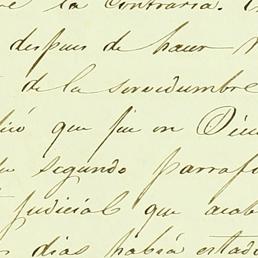 la contraria.
despues de haver
de la servidumbre
que fue en
segundo parrafo
judicial que acab
dias habrá estad